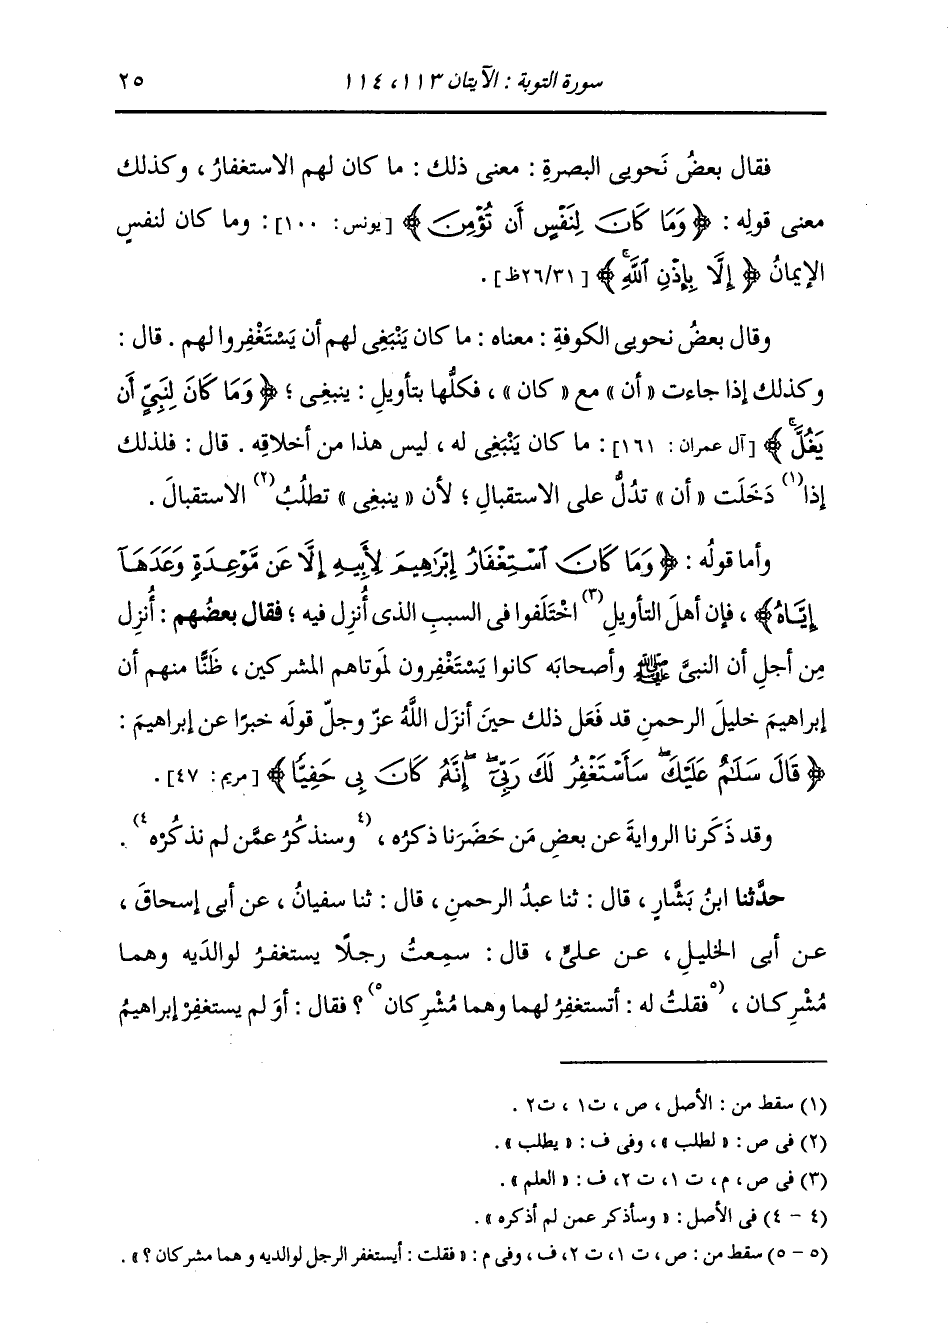 سورة التوبة : الآيتان ١١٣، ١١٤ ٢٥
فقال بعضُ نَحويى البصرةِ : معنى ذلك : ما كان لهم الاستغفارُ ، وكذلك
معنى قولِه : ﴿ وَمَا كَانَ لِنَفْسٍ أَن تُؤْمِنَ ﴾ [يونس: ١٠٠] : وما كان لنفسٍ
الإيمانُ ﴿ إِلَّا بِإِذْنِ ٱللَّهِۚ ﴾ [٢٦/٣١ظ] .
وقال بعضُ نحويى الكوفةِ : معناه : ما كان يَنْبَغِى لهم أن يَسْتَغْفِروا لهم . قال :
وكذلك إذا جاءت « أن » مع « كان » ، فكلُّها بتأويلِ : ينبغِى ؛ ﴿ وَمَا كَانَ لِنَبِيٍّ أَن
يَغُلَّۚ ﴾ [آل عمران : ١٦١] : ما كان يَنْبَغِى له ، ليس هذا من أخلاقِه . قال : فلذلك
إذا(١) دَخَلَت « أن » تدُلُّ على الاستقبالِ ؛ لأن « ينبغى » تطلُبُ(٢) الاستقبالَ .
وأما قولُه : ﴿ وَمَا كَانَ ٱسْتِغْفَارُ إِبْرَٰهِيمَ لِأَبِيهِ إِلَّا عَن مَّوْعِدَةٍ وَعَدَهَآ
إِيَّاهُ ﴾ ، فإن أهلَ التأويلِ(٣) اخْتَلَفوا فى السببِ الذى أُنزِل فيه ؛ فقال بعضُهم : أُنزِل
مِن أجلِ أن النبىَّ ﷺ وأصحابَه كانوا يَسْتَغْفِرون لمَوتاهم المشركين ، ظَنًّا منهم أن
إبراهيمَ خليلَ الرحمنِ قد فَعَل ذلك حينَ أنزَل اللَّهُ عزّ وجلّ قولَه خبرًا عن إبراهيمَ :
﴿ قَالَ سَلَٰمٌ عَلَيْكَۖ سَأَسْتَغْفِرُ لَكَ رَبِّيٓۖ إِنَّهُۥ كَانَ بِى حَفِيًّا ﴾ [مريم: ٤٧] .
وقد ذَكَرنا الروايةَ عن بعضِ مَن حَضَرَنا ذكرُه ، (٤وسنذكرُ عمَّن لم نذكُرْه٤) .
حدَّثنا ابنُ بَشَّارٍ ، قال : ثنا عبدُ الرحمنِ ، قال : ثنا سفيانُ ، عن أبى إسحاقَ ،
عن أبى الخليلِ ، عن علىٍّ ، قال : سمِعتُ رجلًا يستغفرُ لوالدَيه وهما
مُشْرِكان ، (٥فقلتُ له : أتستغفِرُ لهما وهما مُشْرِكان٥) ؟ فقال : أوَ لم يستغفِرْ إبراهيمُ
(١) سقط من : الأصل ، ص ، ت١ ، ت٢ .
(٢) فى ص : « لطلب » ، وفى ف : « يطلب » .
(٣) فى ص ، م ، ت ١ ، ت ٢، ف : « العلم » .
(٤ - ٤) فى الأصل : « وسأذكر عمن لم أذكره » .
(٥ - ٥) سقط من : ص ، ت ١، ت ٢، ف ، وفى م : « فقلت : أيستغفر الرجل لوالديه و هما مشركان ؟ » .